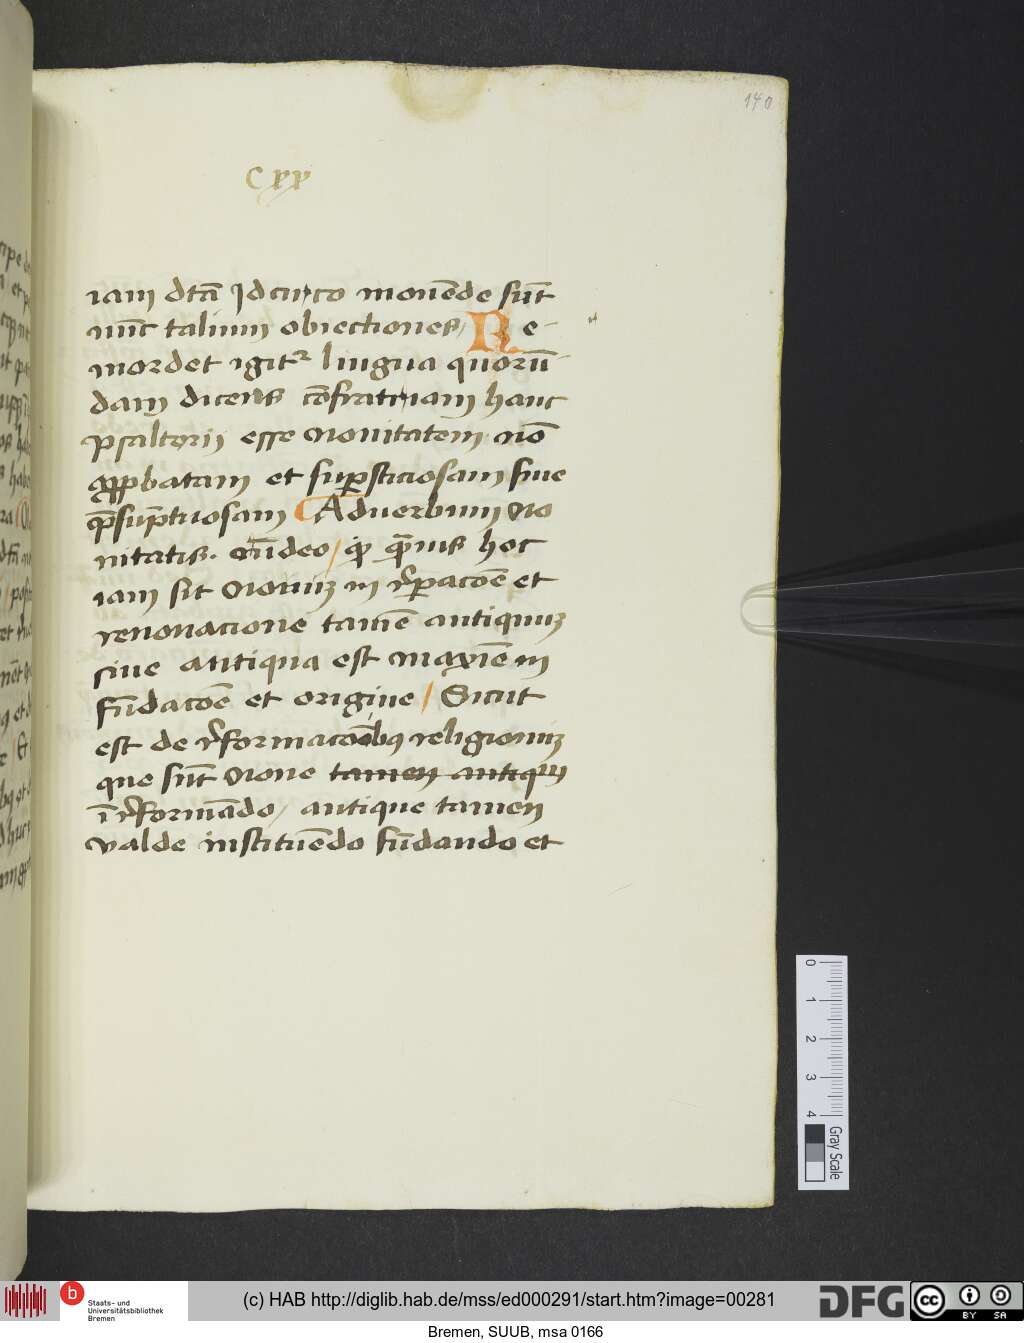 140
Cxx
iam dtā Jdcirco mouēde sūt
nūc talium obiectiones / Re-
mordet igitr lingua quorū-
dam dicens cōfratriam hanc
psalterii esse nouitatem nō
approbatam et suꝑsticiosam siue
p̄sūptuosam Aduerbum no
uitatis. Rn̄deo / qḋ q̄muis hoc
iam sit nouuꝫ in r̄ꝑacōē et
renouacione tamē antiquuꝫ
siue antiqua est maxīe in
fūdacōē et origine / Sicut
est de r̄formacōībꝯ religionuꝫ
que sūt noue tamen antiqui
ī r̄formādo / antique tamen
valde instituēdo fūdando et
0 1 2 3 4
Gray Scale
b
Staats- und
Universitätsbibliothek
Bremen
(c) HAB http://diglib.hab.de/mss/ed000291/start.htm?image=00281
DFG
cc BY SA
Bremen, SUUB, msa 0166